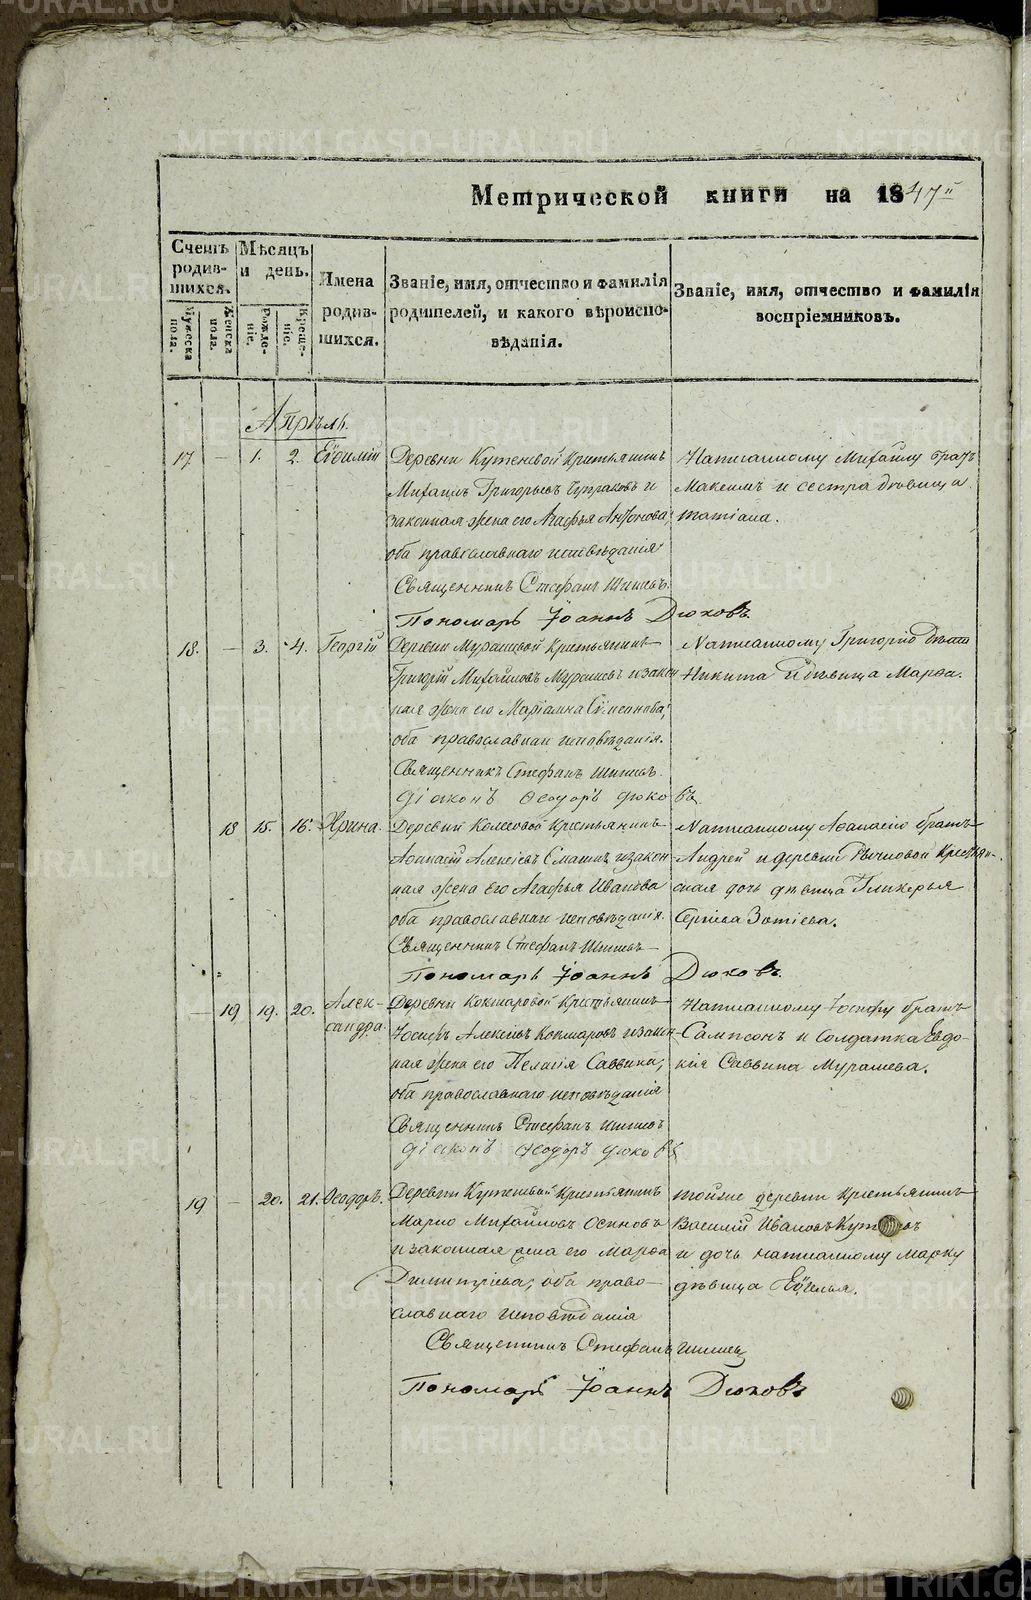 METRIKI.GASO-URAL.RU
Метрической книги на 1847
Счетъ родив-шихся.
Мужеска пола.
Женска пола.
Мѣсяцъ и день.
Рожде-ніе.
Креще-ніе.
Имена родив-шихся.
Званіе, имя, отчество и фамилія
родителей, и какого вѣроиспо-
вѣданія.
Званіе, имя, отчество и фамилія
воспріемниковъ.
Апрѣль.
17. — 1. 2. Евѳимій
Деревни Кутеневой Крестьянинъ
Михаилъ Григорьевъ и
законная жена его Агафья Антонова,
оба православнаго исповѣданія
Священникъ Стефанъ
Пономарь Іоаннъ Дюковъ.
Написанному Михаилу братъ
Максимъ и сестра дѣвица
Татіана.
18. — 3. 4. Георгій
Деревни Мурашевой Крестьянинъ
Григорій Михаиловъ Мурашевъ и закон
ная жена его Маріамна
оба православнаго исповѣданія.
Священникъ Стефанъ
Діаконъ Ѳеодоръ Дюковъ
Написанному Григорію
Никита и дѣвица Марѳа.
18 15. 16. Ирина.
Деревни Колесовой Крестьянинъ
Аѳанасій Алексѣевъ и закон
ная жена его Агафья Иванова
оба православнаго исповѣданія.
Священникъ Стефанъ
Пономарь Іоаннъ Дюковъ.
Написанному Аѳанасію братъ
Андрей и деревни Крестьян-
ская дочь дѣвица Гликерья
Сергіева Зотіева.
— 19 19. 20. Алек-
сандра.
Деревни Кокшаровой Крестьянинъ
Іосифъ Алексѣевъ Кокшаровъ и закон
ная жена его Пелагія Саввина,
оба православнаго исповѣданія
Священникъ Стефанъ
Діаконъ Ѳеодоръ Дюковъ
Написанному Іосифу братъ
Сампсонъ и солдатка Евдо-
кія Саввина Мурашева.
19 — 20. 21. Ѳеодоръ.
Деревни Кутеневой Крестьянинъ
Марко Михайловъ Осиновъ
и законная жена его Марѳа
Димитріева, оба право-
славнаго исповѣданія
Священникъ Стефанъ
Пономарь Іоаннъ Дюковъ
тойже деревни Крестьянинъ
Василій Ивановъ
и дочь написанному Марку
дѣвица